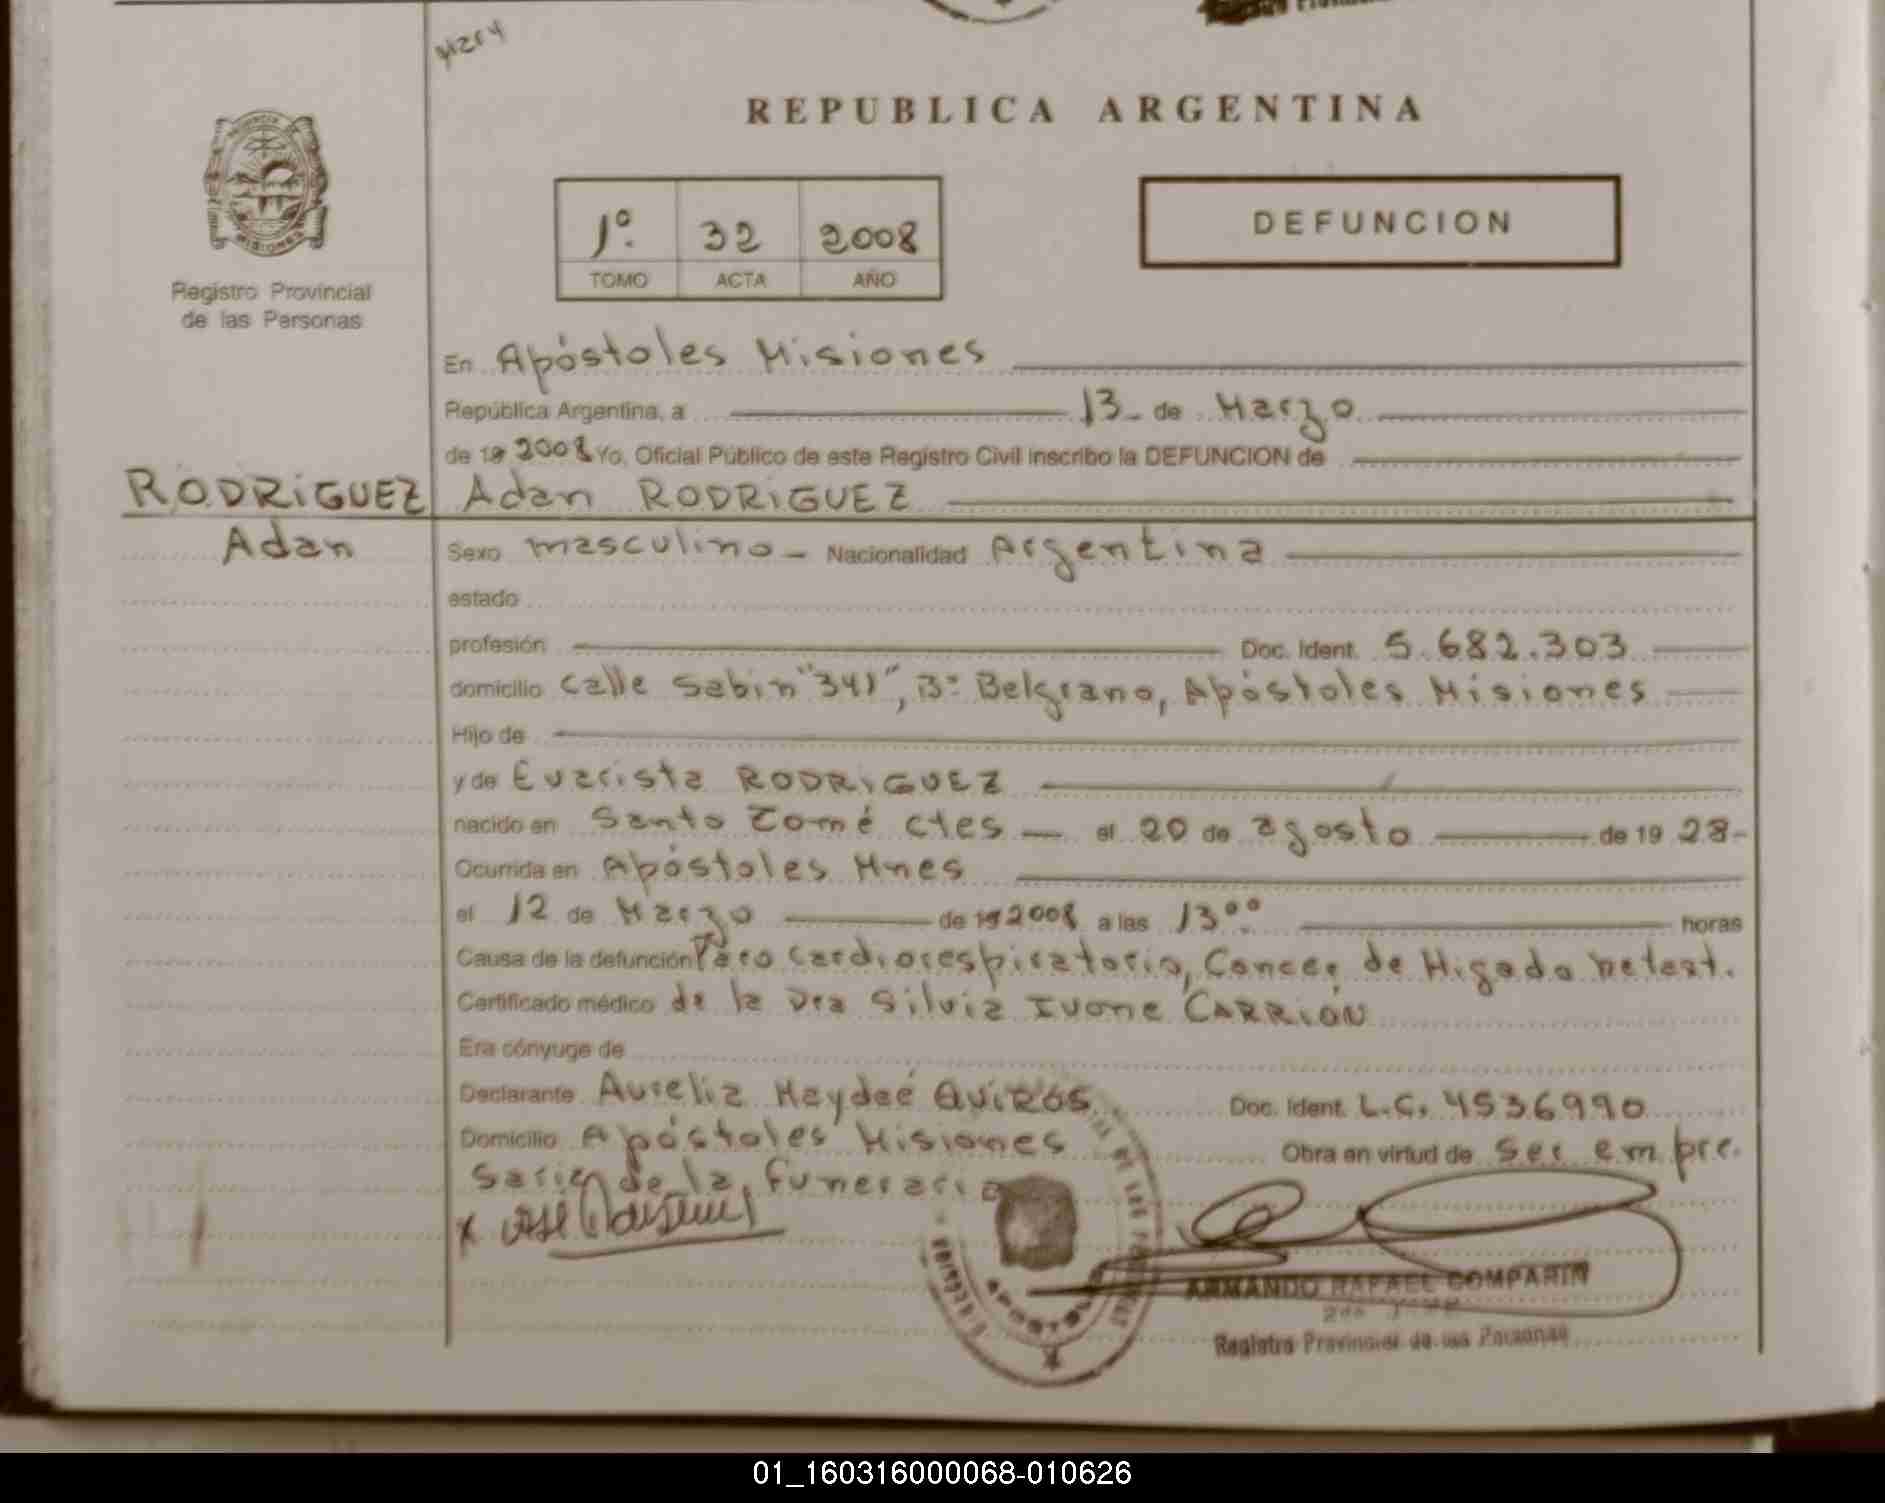 REPUBLICA ARGENTINA
PROVINCIA
MISIONES
Registro Provincial
de las Personas
1º. 32 2008
TOMO ACTA AÑO
DEFUNCION
En Apóstoles Misiones
República Argentina, a 13 de Marzo
de 19 2008 Yo, Oficial Público de este Registro Civil inscribo la DEFUNCION de
RODRIGUEZ Adan RODRIGUEZ
Adan
Sexo masculino - Nacionalidad Argentina
estado
profesión Doc. Ident. 5.682.303
domicilio calle Sabin "341", B° Belgrano, Apóstoles Misiones
Hijo de
y de Evarista RODRIGUEZ
nacido en Santo Tomé ctes el 20 de agosto de 19 28-
Ocurrida en Apóstoles Mnes
el 12 de Marzo de 19 2008 a las 13°° horas
Causa de la defunción Paro cardiorespiratorio, Cancer de Higado
Certificado médico de la Dra Silvia Ivone CARRIÓN
Era cónyuge de
Declarante Aurelia Haydeé QUIRÓS Doc. Ident. L.C. 4536990
Domicilio Apóstoles Misiones Obra en virtud de ser empre.
saria de la funeraria
ARMANDO RAFAEL COMPARIN
Registro Provincial de las Personas
01_160316000068-010626